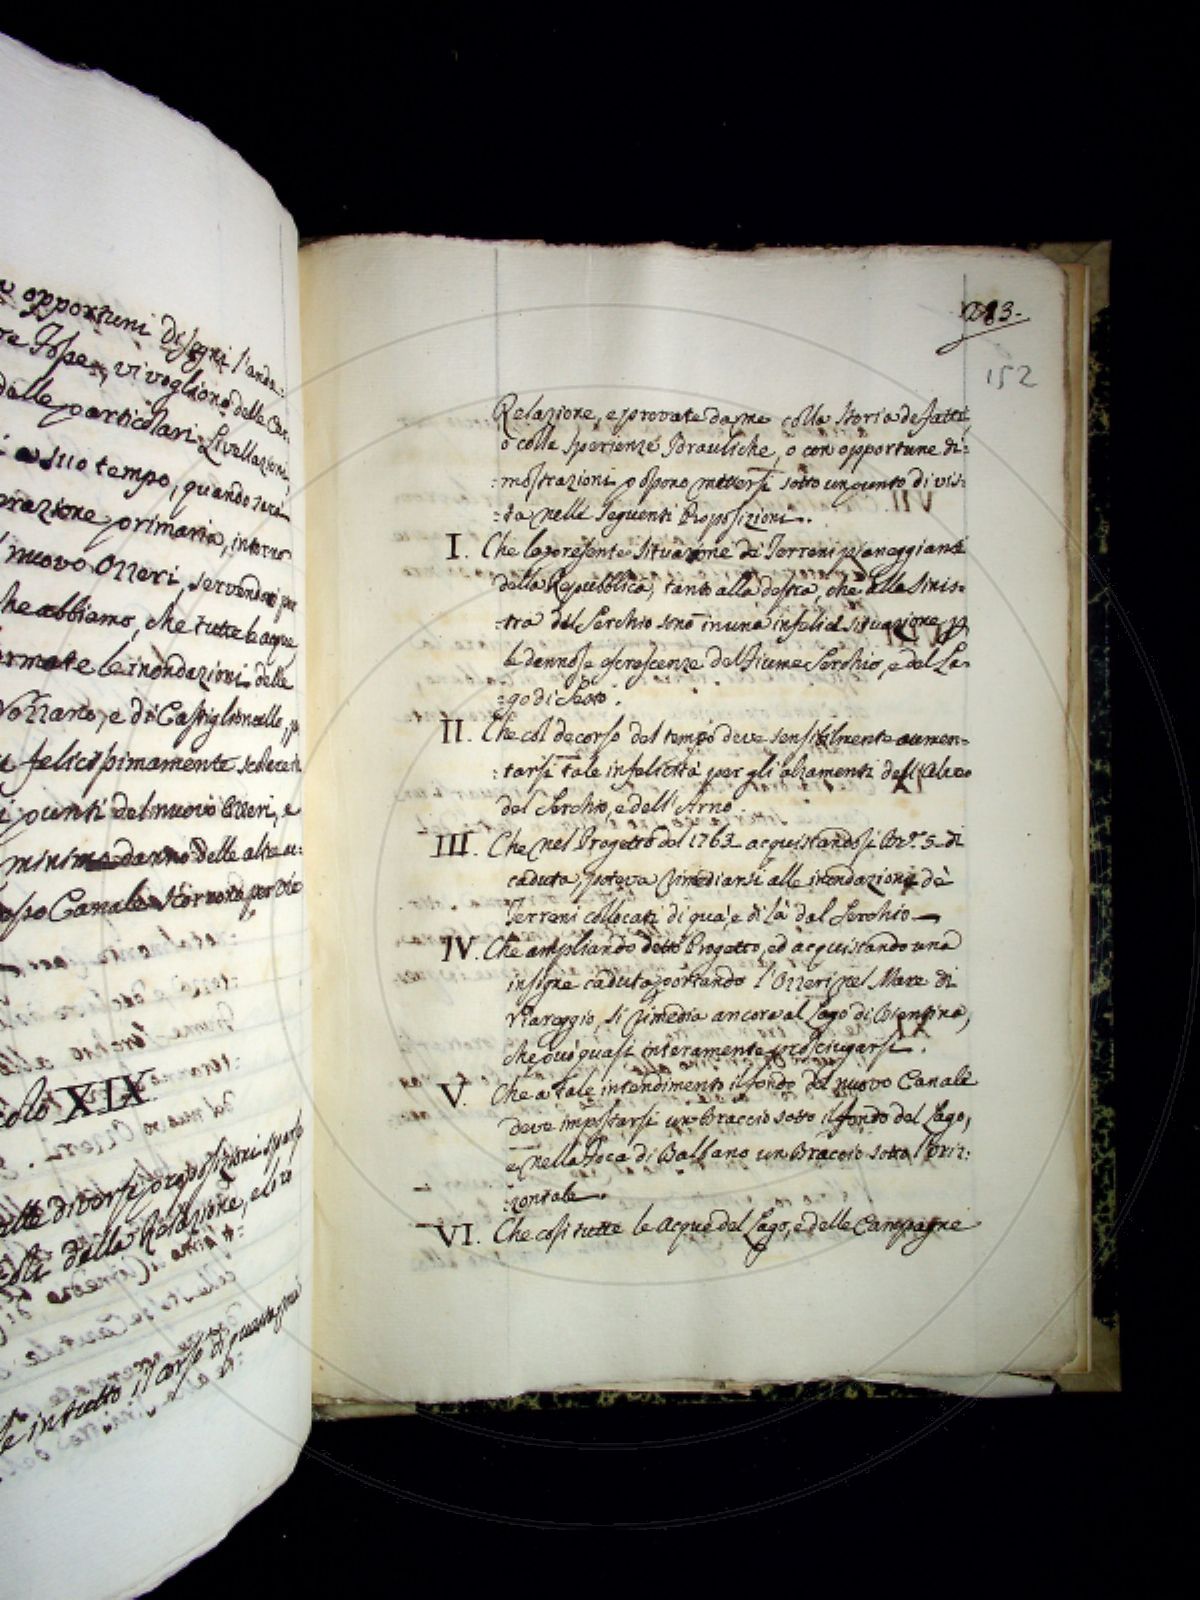 opportuni disegni l'anda:
Fosse, vi vogliono delle
dalle particolari Livellazioni,
a suo tempo, quando sarà
primaria, intorno
nuovo Ozzeri, servendosi per
che abbiamo, che tutte le acque
le inondazioni delle
Nozzano, e di Castiglioncello, p
felicissimamente
punti del nuovo Ozzeri, e
minimo danno delle altre
Canale per via
XIX
diverse proposizioni sparse
della Relazione, e loro
in tutto il corso di questa mia
213.
152
Relazione, e provate da me colla storia de fatti,
o colle sperienze Idrauliche, o con opportune di:
:mostrazioni possono mettersi sotto un punto di vis:
:ta nelle seguenti Proposizioni.
I. Che la presente situazione de' Terreni pianeggianti
della Repubblica, tanto alla destra, che alla sinis:
:tra del Serchio sono in una infelice situazione p
le dannose escrescenze del Fiume Serchio, e del La:
:go di Sesto.
II. Che col decorso del tempo deve sensibilmente aumen:
:tarsi tale infelicità per gli alzamenti dell'Alveo
del Serchio, e dell'Arno.
III. Che nel Progetto del 1763 acquistandosi Br.a 5 di
caduta, poteva rimediarsi alle inondazioni de'
Terreni collocati di quà, e di là dal Serchio
IV. Che ampliando detto Progetto, ed acquistando una
insigne caduta portando l'Ozzeri nel Mare di
Viareggio, si rimedia ancora al Lago di Bientina,
che può quasi interamente prosciugarsi.
V. Che a tale intendimento il fondo del nuovo Canale
deve impostarsi un Braccio sotto il fondo del Lago,
e nella Foca di Balbano un Braccio sotto l'oriz:
:zontale.
VI. Che così tutte le Acque del Lago, e delle Campagne